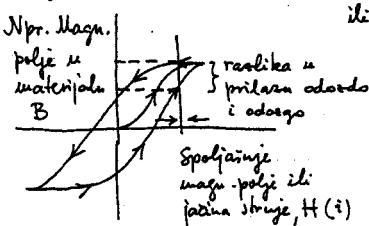 ili
Npr. Magn.
polje u
materijalu
B
razlika u
prilazu odozdo
i odozgo
Spoljašnje
magn. polje ili
jačina struje, H(i)